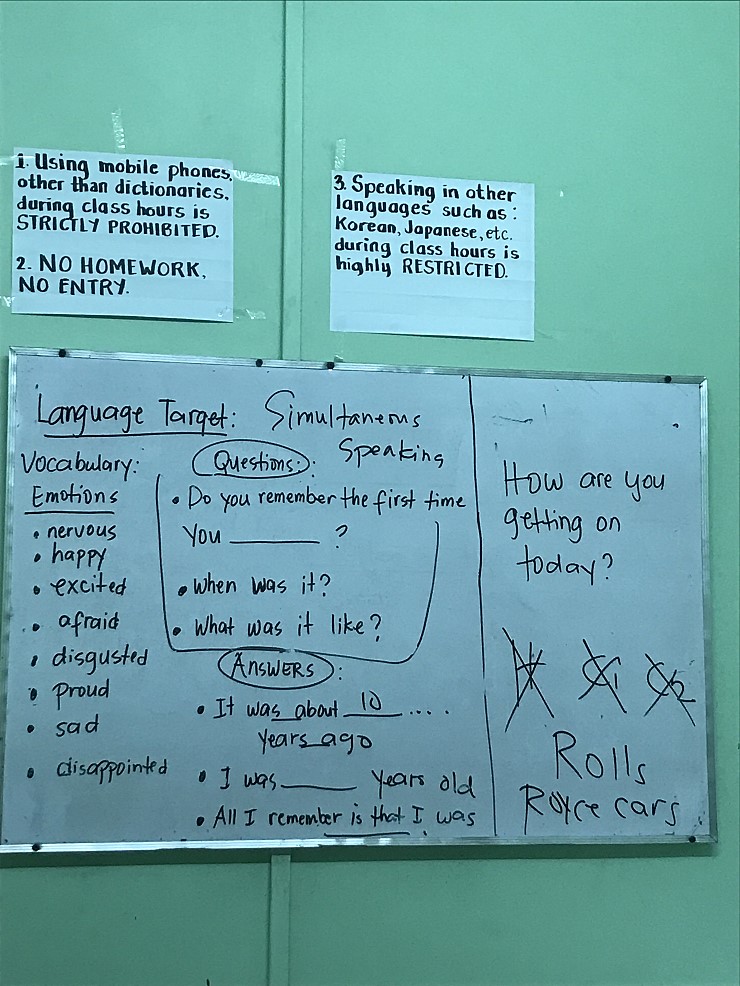 1. Using mobile phones,
other than dictionaries,
during class hours is
STRICTLY PROHIBITED.
2. NO HOMEWORK,
NO ENTRY.
3. Speaking in other
languages such as:
Korean, Japanese, etc.
during class hours is
highly RESTRICTED.
Language Target: Simultaneous
Speaking
Vocabulary:
Emotions
• nervous
• happy
• excited
• afraid
• disgusted
• proud
• sad
• disappointed
Questions:
• Do you remember the first time
you ______ ?
• When was it?
• What was it like?
Answers:
• It was about 10 ....
years ago
• I was ______ years old
• All I remember is that I was
How are you
getting on
today?
Rolls
Royce cars